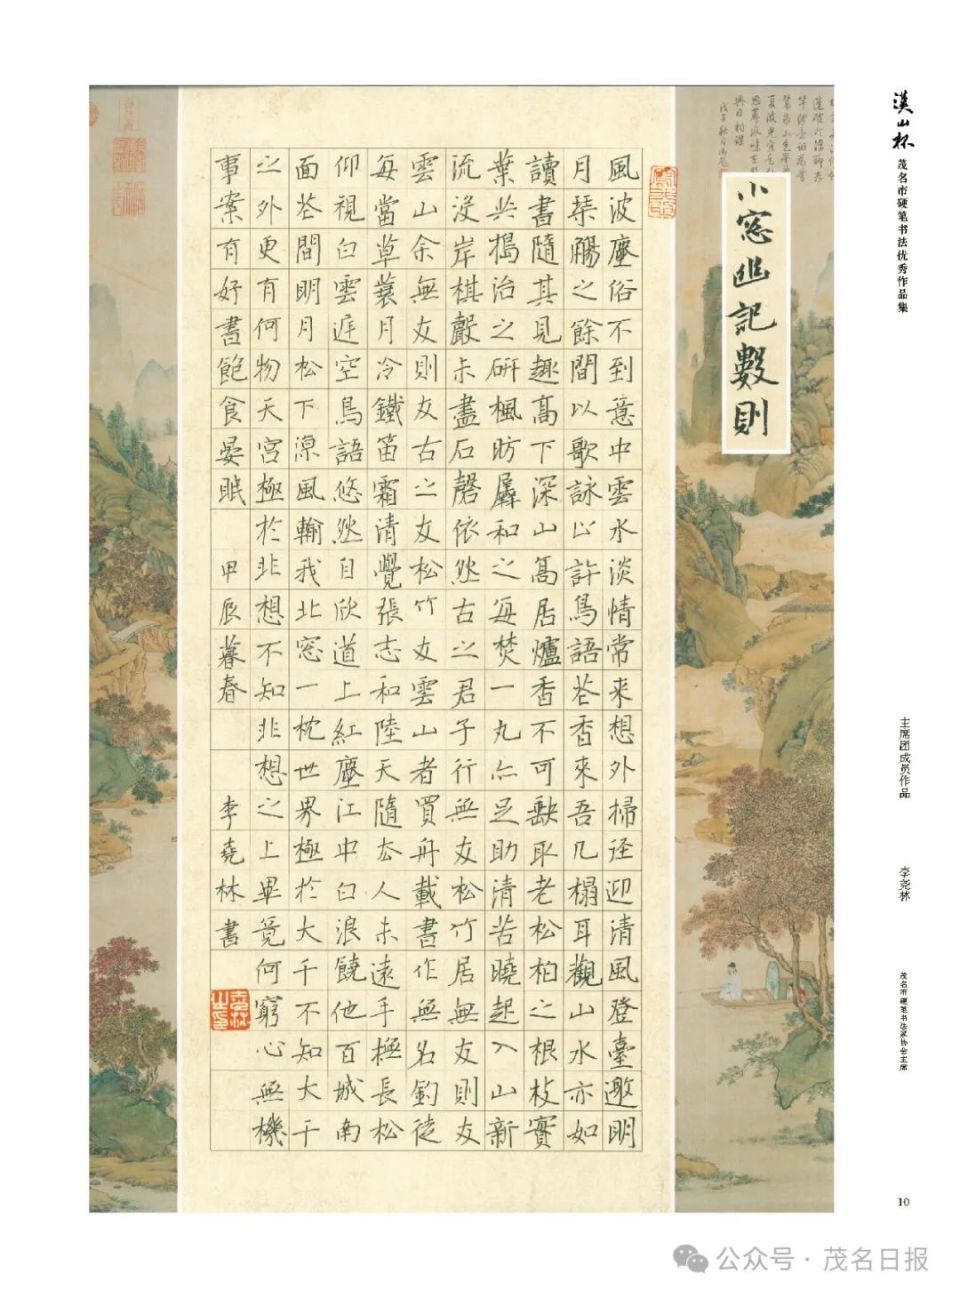 漢山杯
茂名市硬笔书法优秀作品集
小窓幽記數則
風波塵俗不到意中雲水淡情常来想外掃径迎清風登臺邀明
月琴觴之餘間以歌詠止許鳥語花香來吾几榻耳觀山水亦如
讀書隨其見趣高下深山高居爐香不可缺取老松柏之根枝實
葉共搗治之研楓肪羼和之每焚一丸亦足助清苦曉起入山新
流没岸棋聲未盡石磬依然古之君子行無友松竹居無友則友
雲山余無友則友古之友松竹友雲山者買舟載書作無名釣徒
每當草蓑月冷鐵笛霜清覺張志和陸天隨去人未遠手撫長松
仰視白雲庭空鳥語悠然自欣道上紅塵江中白浪饒他百城南
面花間明月松下凉風輸我北窓一枕世界極於大千不知大千
之外更有何物天宫極於非想不知非想之上畢竟何窮心無機
事案有好書飽食晏眠 甲辰暮春 李堯林書
主席团成员作品
李尧林
茂名市硬笔书法家协会主席
10
公众号·茂名日报